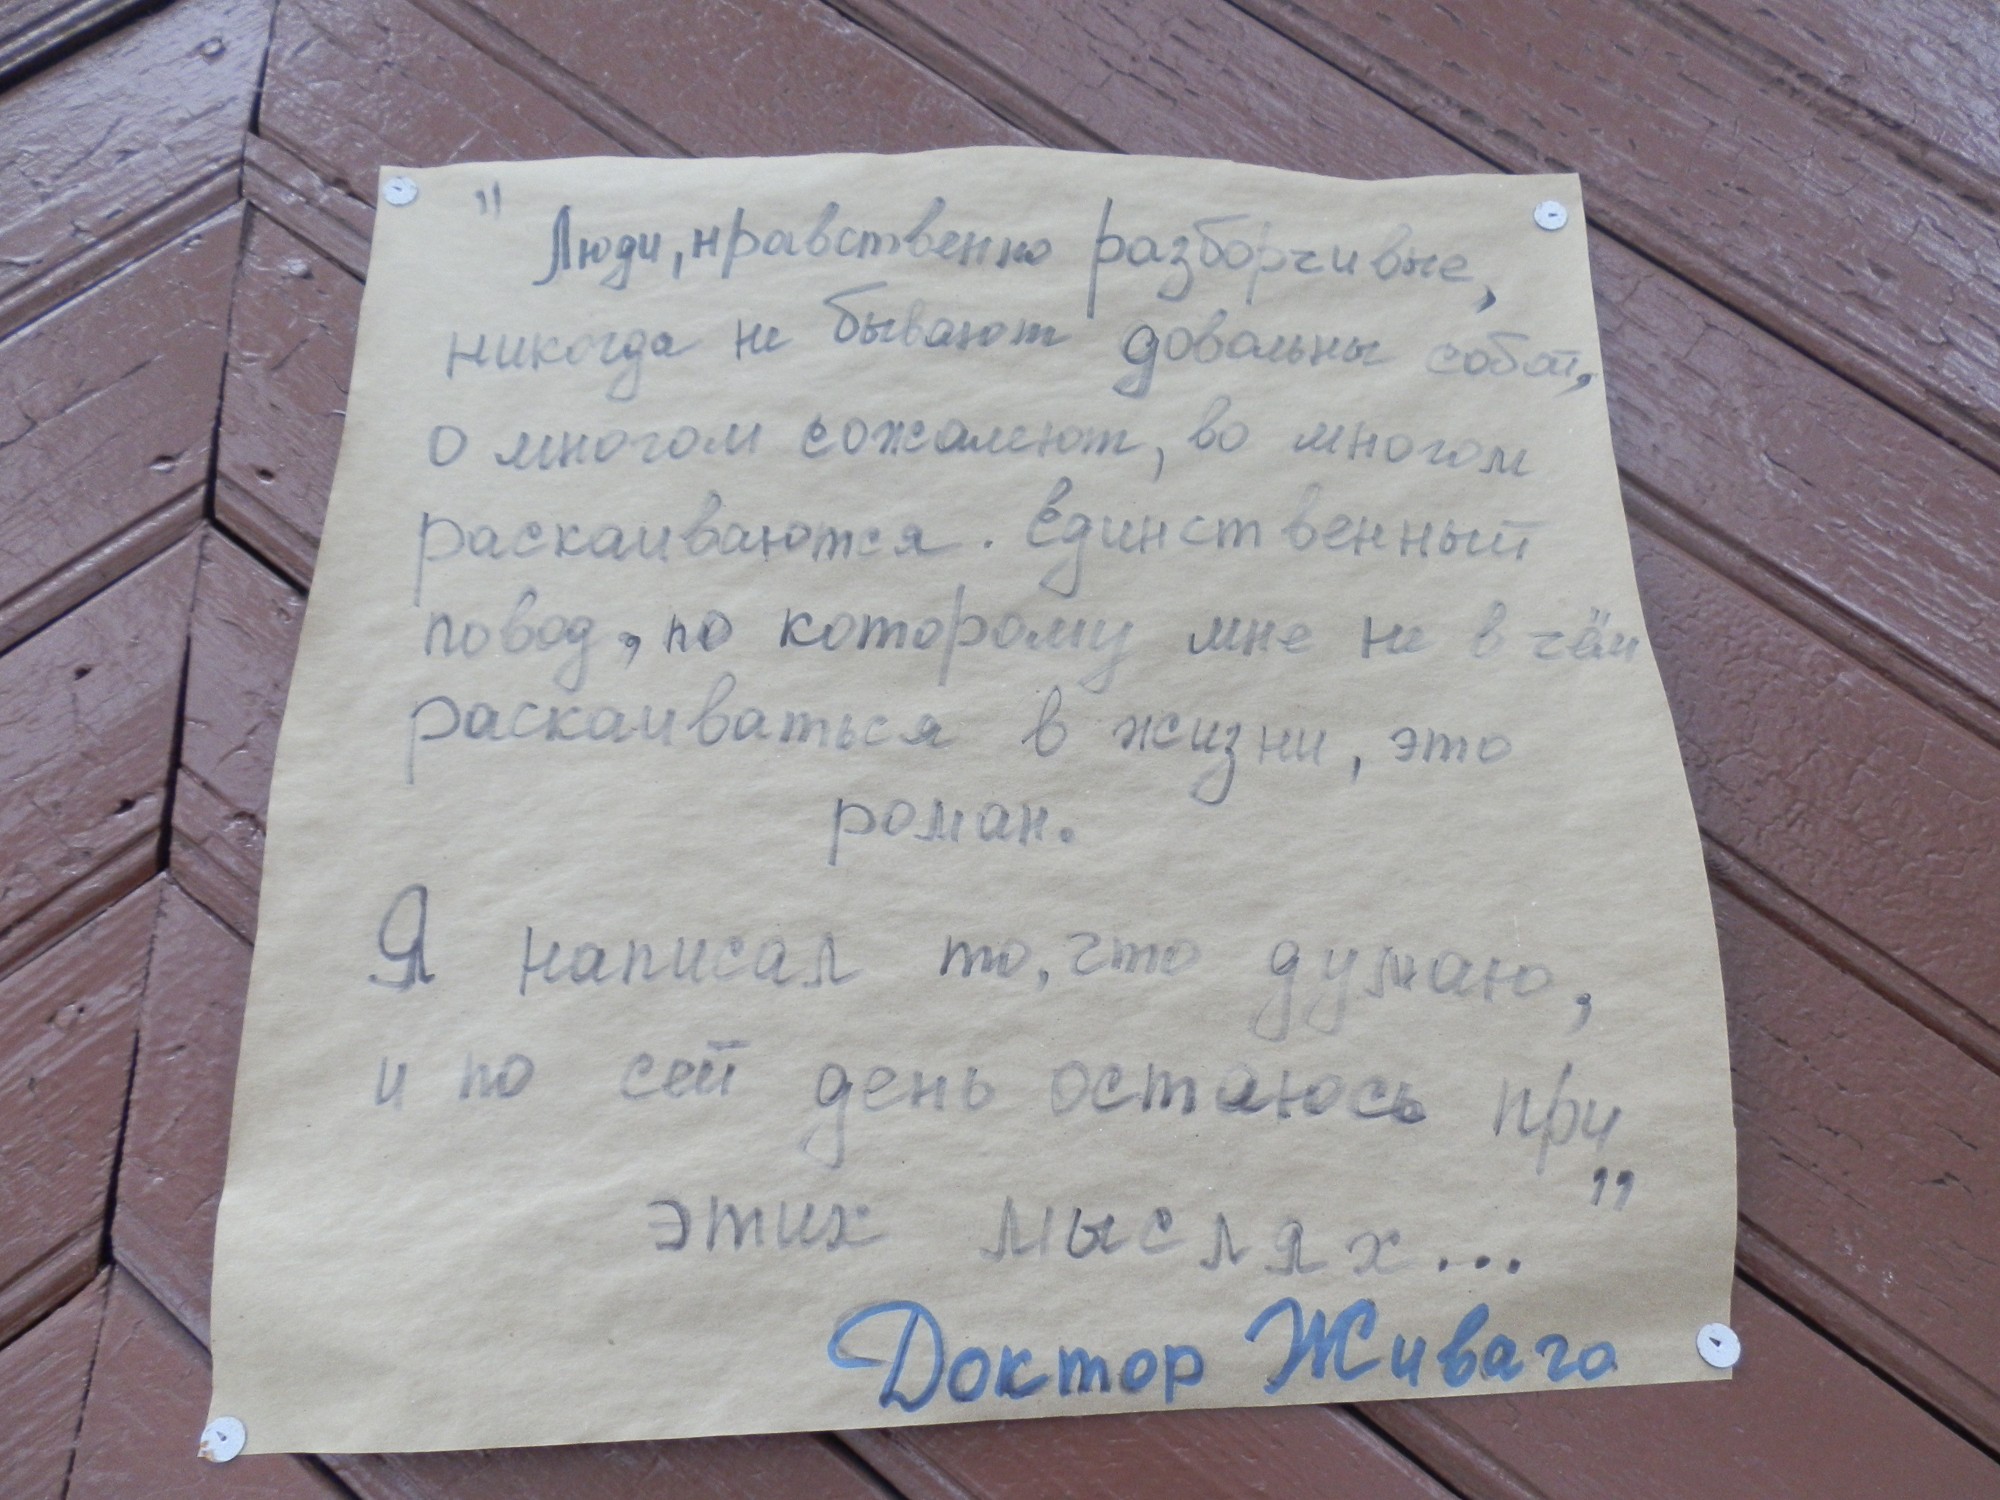 " Люди, нравственно разборчивые,
никогда не бывают довольны собой,
о многом сожалеют, во многом
раскаиваются. Единственный
повод, по которому мне не в чём
раскаиваться в жизни, это
роман.
Я написал то, что думаю,
и по сей день остаюсь при
этих мыслях... "
Доктор Живаго